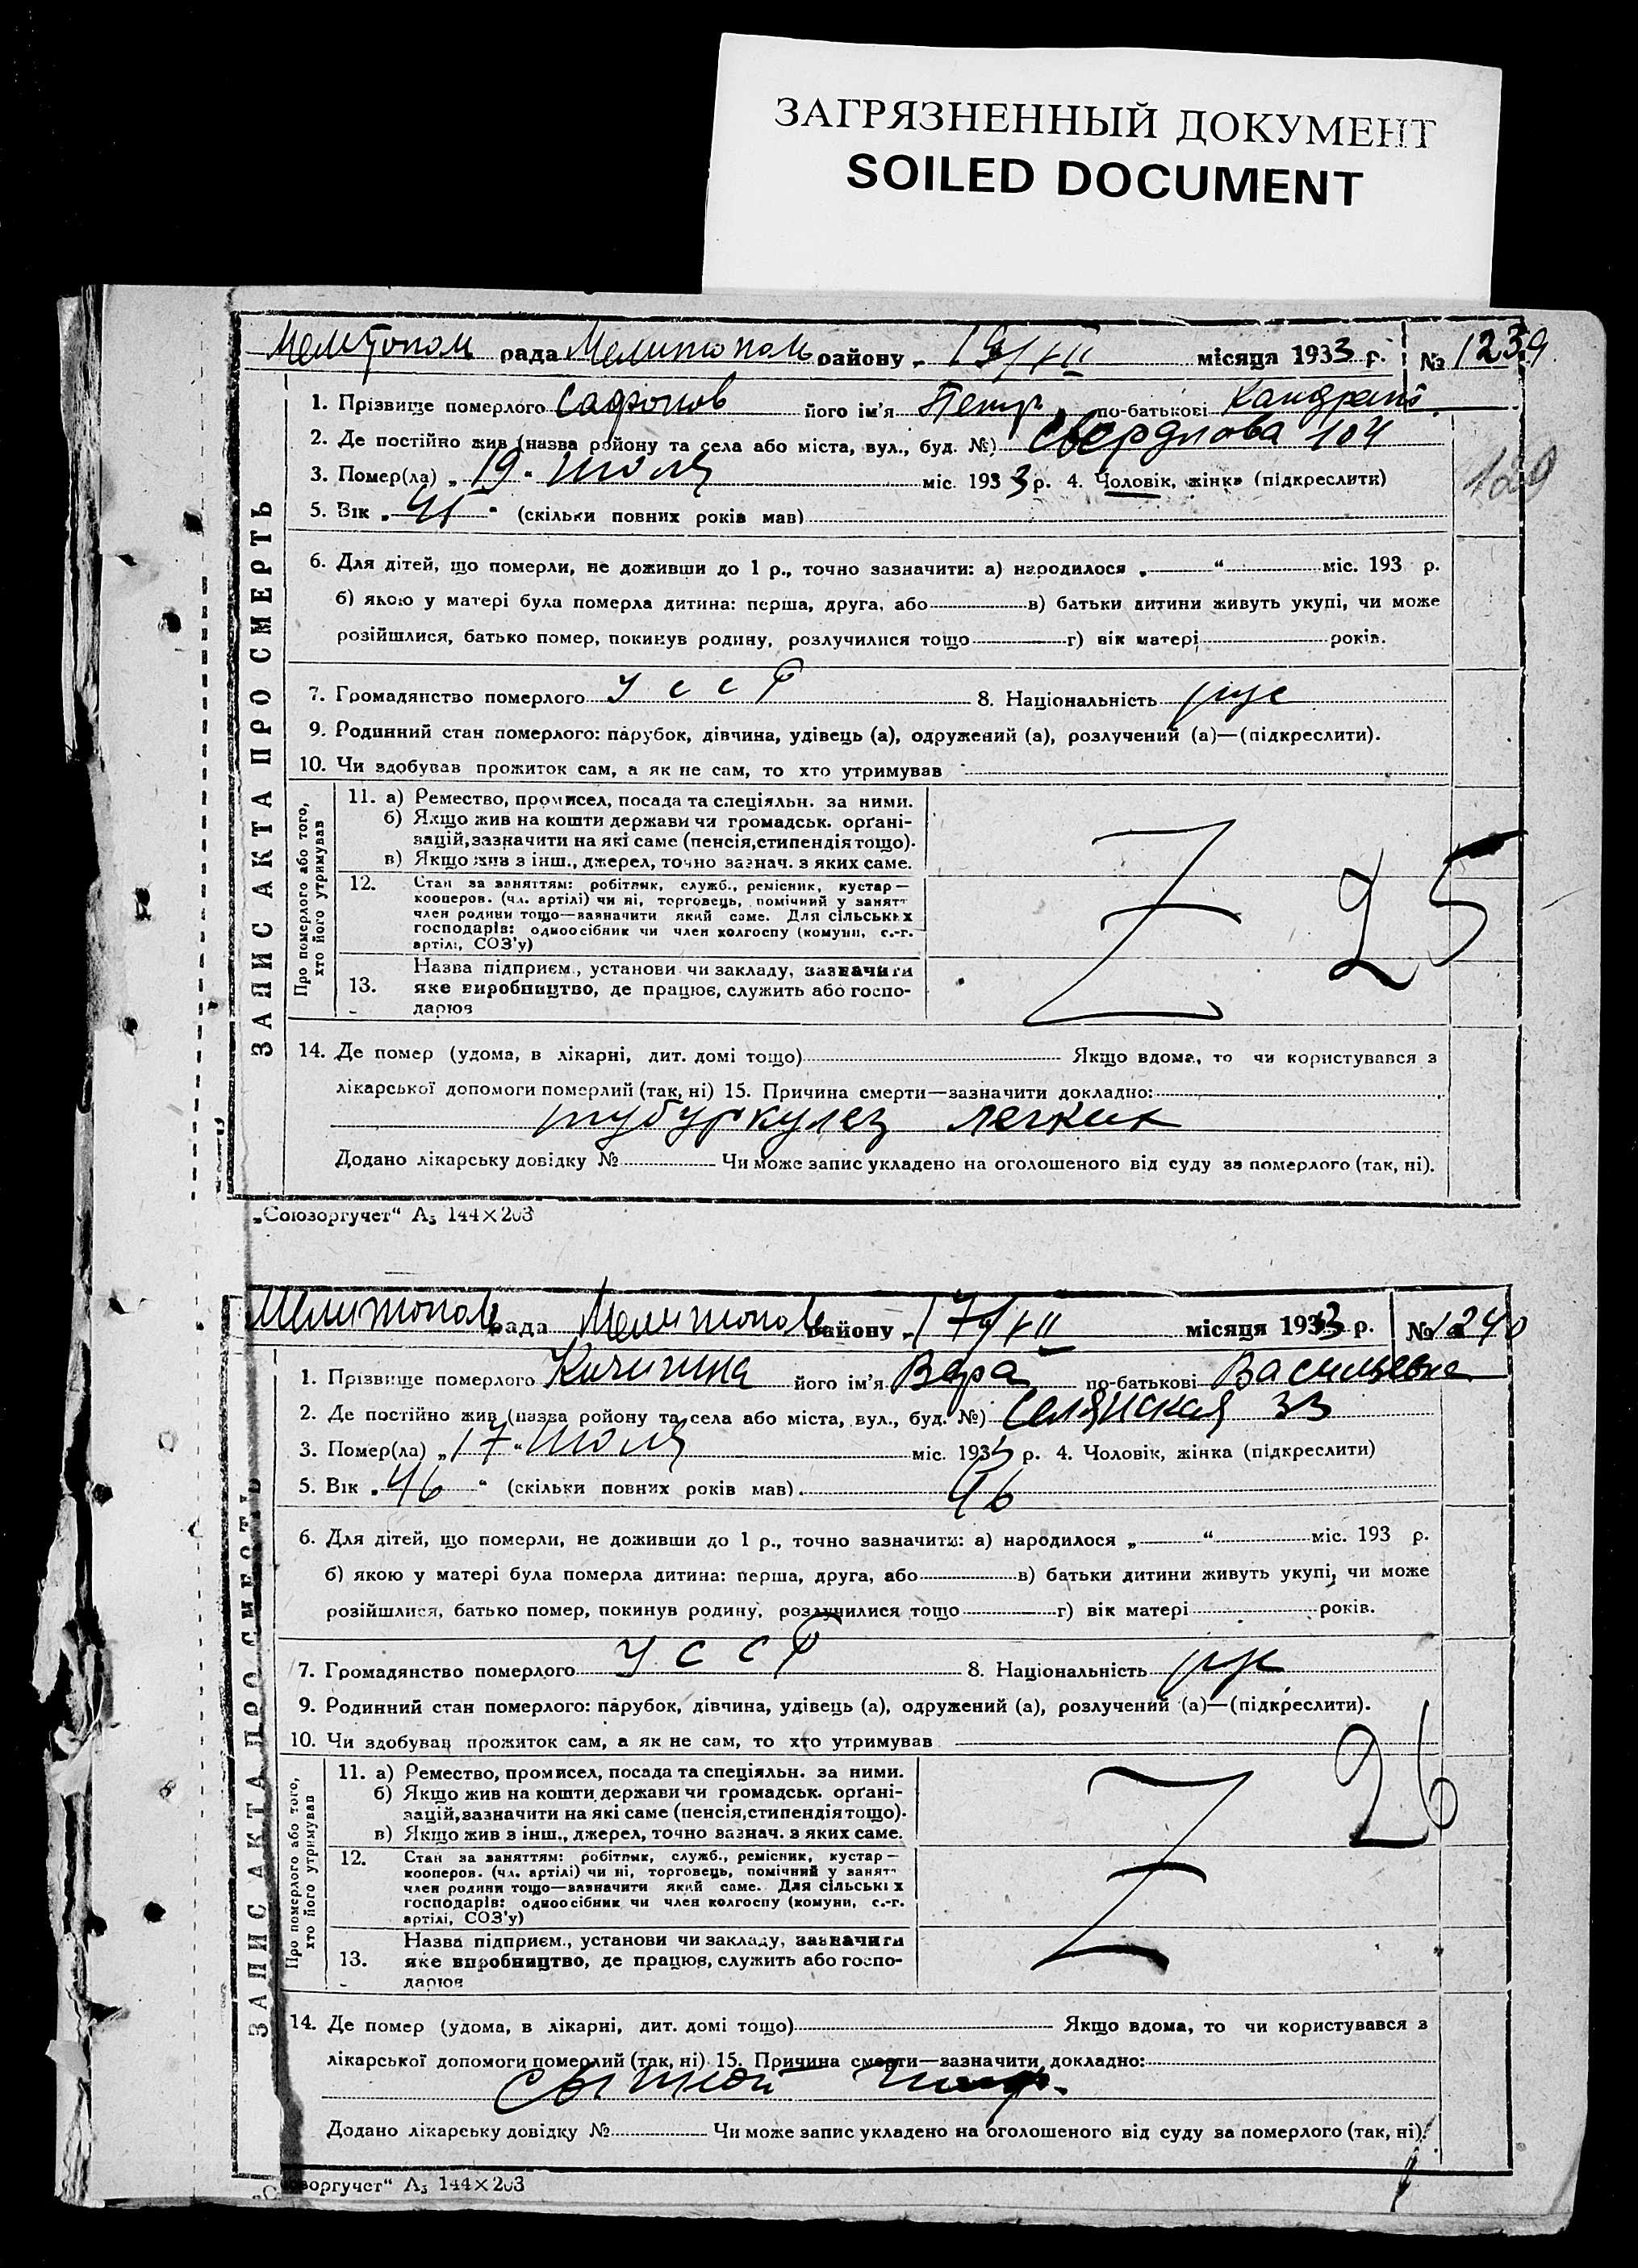 ЗАГРЯЗНЕННЫЙ ДОКУМЕНТ
SOILED DOCUMENT
Мелитополь рада Мелитополь району „ 19/VII місяця 1933 р. № 1239
1. Прізвище померлого Сафонов його ім'я Петр по-батькові Кандрат
2. Де постійно жив (назва району та села або міста, вул., буд. №) Свердлова 104
129
3. Помер(ла) „ 19 " июля міс. 1933 р. 4. Чоловік, жінка (підкреслити)
5. Вік „ 45 " (скільки повних років мав)
6. Для дітей, що померли, не доживши до 1 р., точно зазначити: а) народилося „ “ міс. 193 р.
б) якою у матері була померла дитина: перша, друга, або в) батьки дитини живуть укупі, чи може
розійшлися, батько помер, покинув родину, розлучилися тощо г) вік матері років.
7. Громадянство померлого УССР 8. Національність рус
9. Родинний стан померлого: парубок, дівчина, удівець (а), одружений (а), розлучений (а)—(підкреслити).
10. Чи здобував прожиток сам, а як не сам, то хто утримував
ЗАПИС АКТА ПРО СМЕРТЬ
Про померлого або того, хто його утримував
11. а) Ремество, промисел, посада та спеціяльн. за ними.
б) Якщо жив на кошти держави чи громадськ. орґані-
зацій, зазначити на які саме (пенсія, стипендія тощо).
в) Якщо жив з інш., джерел, точно зазнач. з яких саме.
12. Стан за заняттям: робітник, служб., ремісник, кустар—
кооперов. (чл. артілі) чи ні, торговець, помічний у занятт
член родини тощо—зазначити який саме. Для сільських
господарів: одноосібник чи член колгоспу (комуни, с.-г.
артілі, СОЗ'у)
Z 25
Назва підприєм., установи чи закладу, зазначити
13. яке виробництво, де працює, служить або госпо-
дарює
14. Де помер (удома, в лікарні, дит. домі тощо) Якщо вдома, то чи користувався з
лікарської допомоги померлий (так, ні) 15. Причина смерти—зазначити докладно:
тубуркулез легких
Додано лікарську довідку № Чи може запис укладено на оголошеного від суду за померлого (так, ні).
„Союзоргучет“ А₅ 144×203
Мелитополь рада Мелитополь району „ 17/VII місяця 1933 р. № 1240
1. Прізвище померлого Кичигина його ім'я Вера по-батькові Васильевна
2. Де постійно жив (назва району та села або міста, вул., буд. №) Селянская 33
3. Помер(ла) „ 17 " июля міс. 1933 р. 4. Чоловік, жінка (підкреслити)
5. Вік „ 46 “ (скільки повних років мав) 46
6. Для дітей, що померли, не доживши до 1 р., точно зазначити: а) народилося „ “ міс. 193 р.
б) якою у матері була померла дитина: перша, друга, або в) батьки дитини живуть укупі, чи може
розійшлися, батько помер, покинув родину, розлучилися тощо г) вік матері років.
7. Громадянство померлого УССР 8. Національність рус
9. Родинний стан померлого: парубок, дівчина, удівець (а), одружений (а), розлучений (а)—(підкреслити).
10. Чи здобував прожиток сам, а як не сам, то хто утримував
ЗАПИС АКТА ПРО СМЕРТЬ
Про померлого або того, хто його утримував
11. а) Ремество, промисел, посада та спеціяльн. за ними.
б) Якщо жив на кошти держави чи громадськ. орґані-
зацій, зазначити на які саме (пенсія, стипендія тощо).
в) Якщо жив з інш., джерел, точно зазнач. з яких саме.
12. Стан за заняттям: робітник, служб., ремісник, кустар—
кооперов. (чл. артілі) чи ні, торговець, помічний у занятт
член родини тощо—зазначити який саме. Для сільських
господарів: одноосібник чи член колгоспу (комуни, с.-г.
артілі, СОЗ'у)
Z 26
Назва підприєм., установи чи закладу, зазначити
13. яке виробництво, де працює, служить або госпо-
дарює
14. Де помер (удома, в лікарні, дит. домі тощо) Якщо вдома, то чи користувався з
лікарської допомоги померлий (так, ні) 15. Причина смерти—зазначити докладно:
Сыпной
Додано лікарську довідку № Чи може запис укладено на оголошеного від суду за померлого (так, ні).
оюзоргучет“ А₅ 144×203